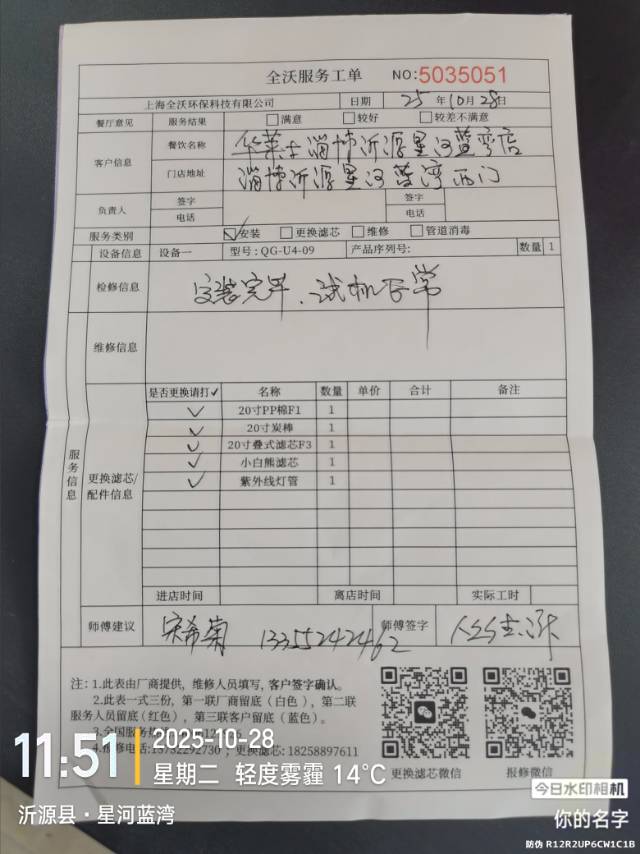 全沃服务工单 NO:5035051
上海全沃环保科技有限公司 日期 25年10月28日
餐厅意见 服务结果 满意 较好 较差不满意
客户信息 餐饮名称 华莱士淄博沂源星河蓝湾店
门店地址 淄博沂源星河蓝湾西门
负责人 签字 签字
电话 电话
服务类别 安装 更换滤芯 维修 管道消毒
设备信息 设备一 型号:QG-U4-09 产品序列号: 数量 1
检修信息 安装完毕、试机正常
维修信息
服务信息
更换滤芯/配件信息
是否更换请打✓ 名称 数量 单价 合计 备注
✓ 20寸PP棉F1 1
✓ 20寸炭棒 1
✓ 20寸叠式滤芯F3 1
✓ 小白熊滤芯 1
✓ 紫外线灯管 1
进店时间 离店时间 实际工时
师傅建议 宋希菊 13355242462 师傅签字
注:1.此表由厂商提供,维修人员填写,客户签字确认。
2.此表一式三份,第一联厂商留底(白色),第二联
服务人员留底(红色),第三联客户留底(蓝色)。
3.全国服务热
4.维修电话:15732292730;更换滤芯:18258897611
更换滤芯微信 报修微信
11:51 2025-10-28
星期二 轻度雾霾 14℃
沂源县·星河蓝湾
今日水印相机
你的名字
防伪 R12R2UP6CW1C1B